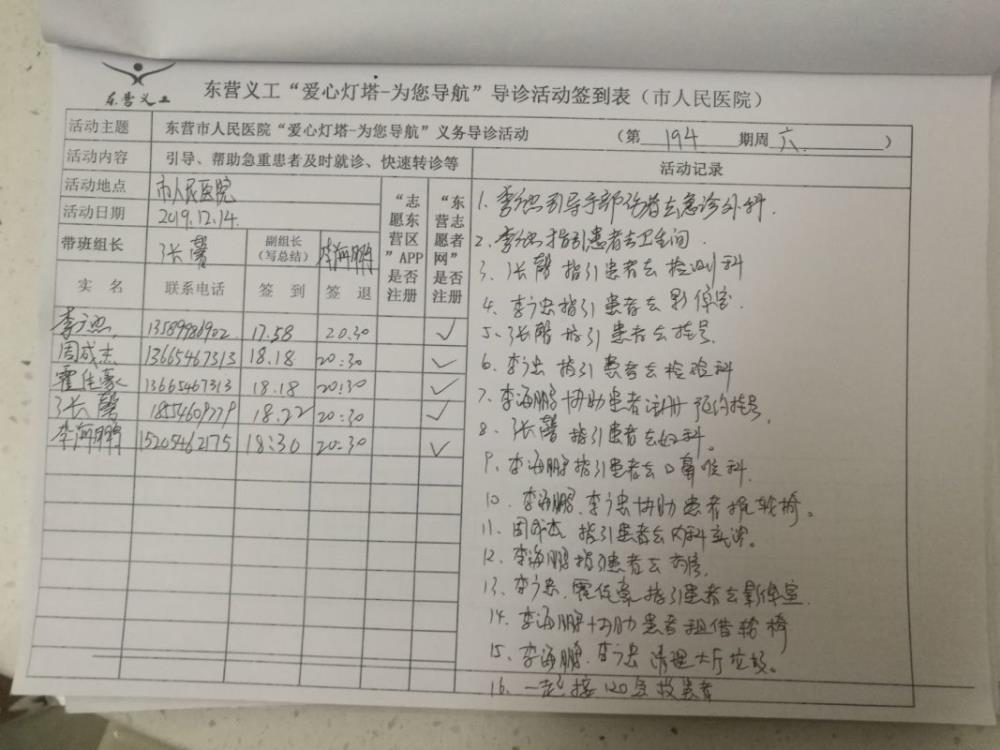 东营义工
东营义工“爱心灯塔-为您导航”导诊活动签到表（市人民医院）
活动主题 东营市人民医院“爱心灯塔-为您导航”义务导诊活动 （第 194 期周 六 ）
活动内容 引导、帮助急重患者及时就诊、快速转诊等
活动地点 市人民医院
活动日期 2019.12.14.
带班组长 张馨 副组长（写总结） 李海鹏
“志愿东营区”APP是否注册
“东营志愿者网”是否注册
实名 联系电话 签到 签退
李广忠 13589986902 17.58 20.30 ✓
周成杰 13665467313 18.18 20:30 ✓
霍佳豪 13665467313 18.18 20:30 ✓
张馨 1854609779 18.22 20:30 ✓
李海鹏 15205462175 18:30 20:30 ✓
活动记录
1.李广忠引导手部伤者去急诊外科.
2.李广忠指引患者去卫生间.
3、张馨指引患者去检测科
4、李广忠指引患者去影像室.
5、张馨指引患者去挂号.
6、李广忠指引患者去检验科
7、李海鹏协助患者注册预约挂号.
8、张馨指引患者去妇科.
9、李海鹏指引患者去口鼻喉科.
10、李海鹏.李广忠协助患者推轮椅。
11、周成杰指引患者去内科就诊.
12、李海鹏指引患者去药房.
13、李广忠.霍佳豪指引患者去影像室.
14、李海鹏协助患者租借轮椅
15、李海鹏.李广忠清理大厅垃圾。
16、一起接120急救患者